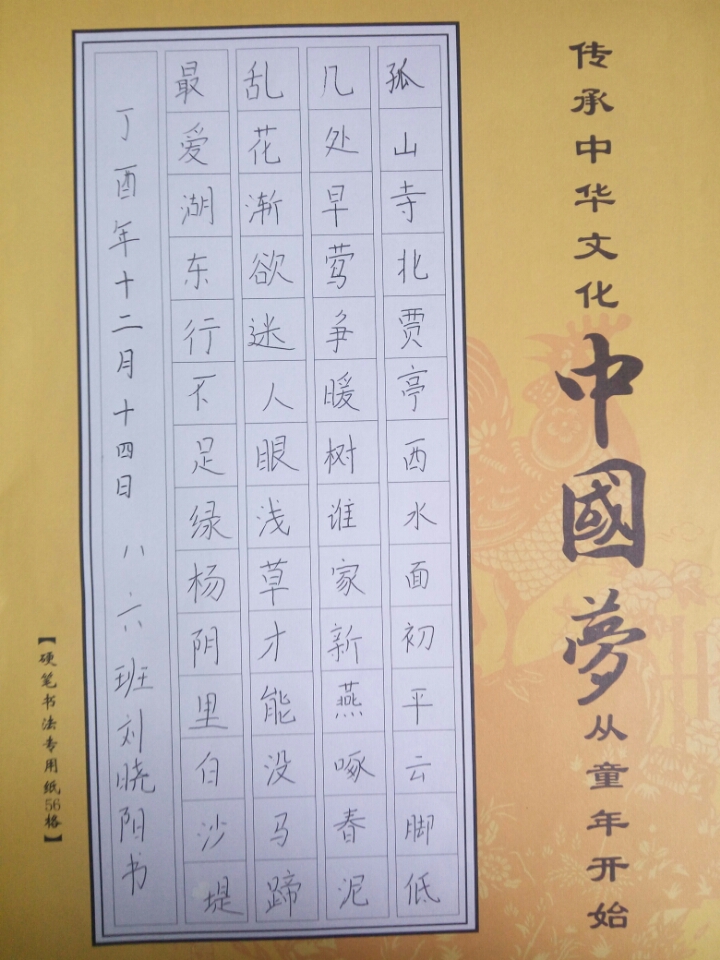 传承中华文化
中國夢
从童年开始
孤山寺北贾亭西水面初平云脚低
几处早莺争暖树谁家新燕啄春泥
乱花渐欲迷人眼浅草才能没马蹄
最爱湖东行不足绿杨阴里白沙堤
丁酉年十二月十四日 八.六班刘晓阳书
【硬笔书法专用纸56格】